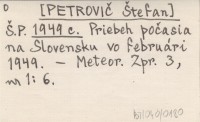 [PETROVIČ Štefan]
Š.P. 1949 c. Priebeh počasia
na Slovensku vo februári
1949. - Meteor. Zpr. 3,
nr 1: 6.